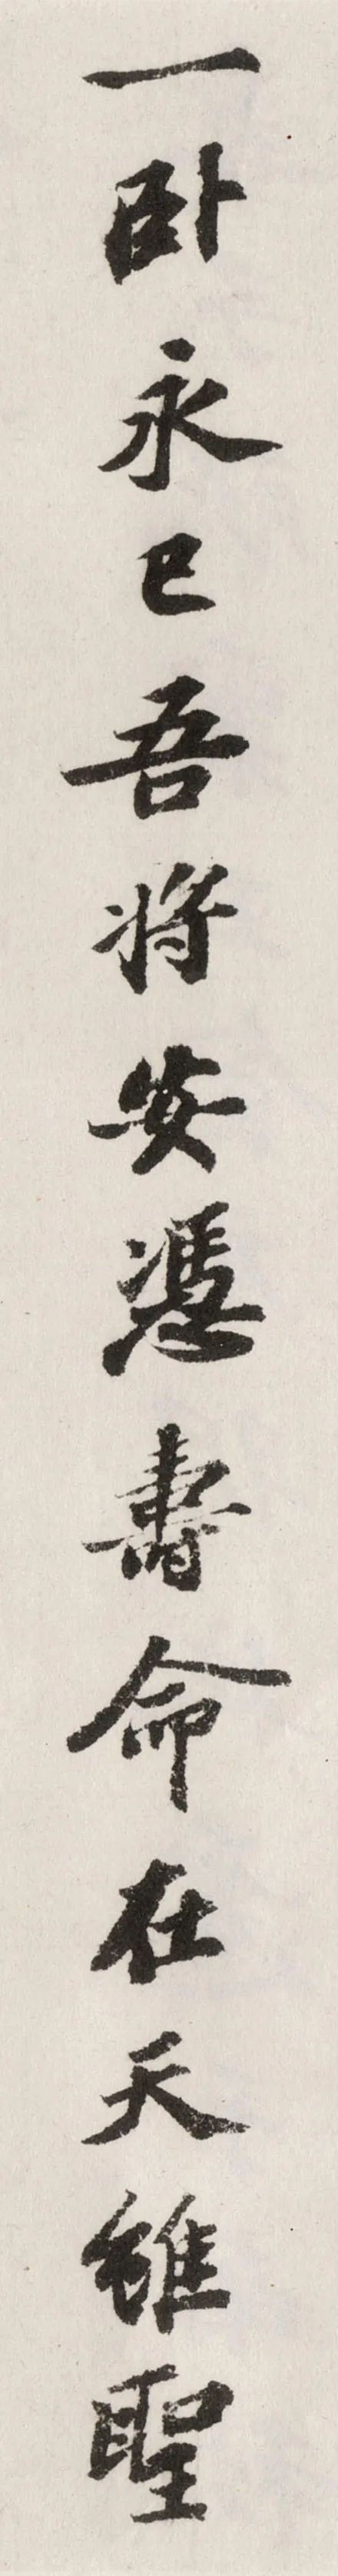 一臥永已吾將安憑壽命在天雖聖